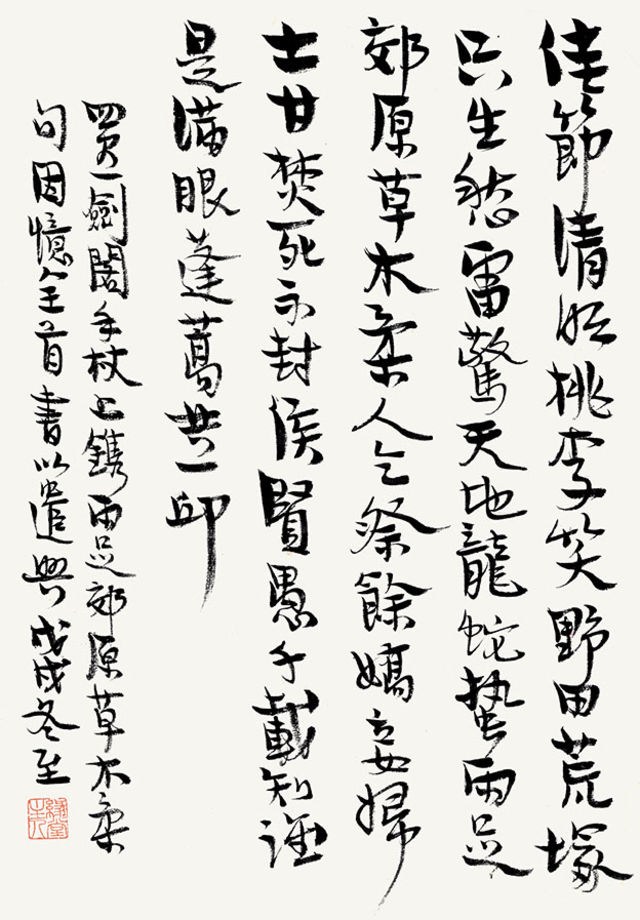 佳節清明桃李笑野田荒塚
只生愁雷驚天地龍蛇蟄雨足
郊原草木柔人乞祭餘嬌妾婦
士甘焚死不封侯賢愚千載知誰
是滿眼蓬蒿共一邱
買一劍閣手杖上鐫雨足郊原草木柔
句因憶全首書以遣興戊戌冬至